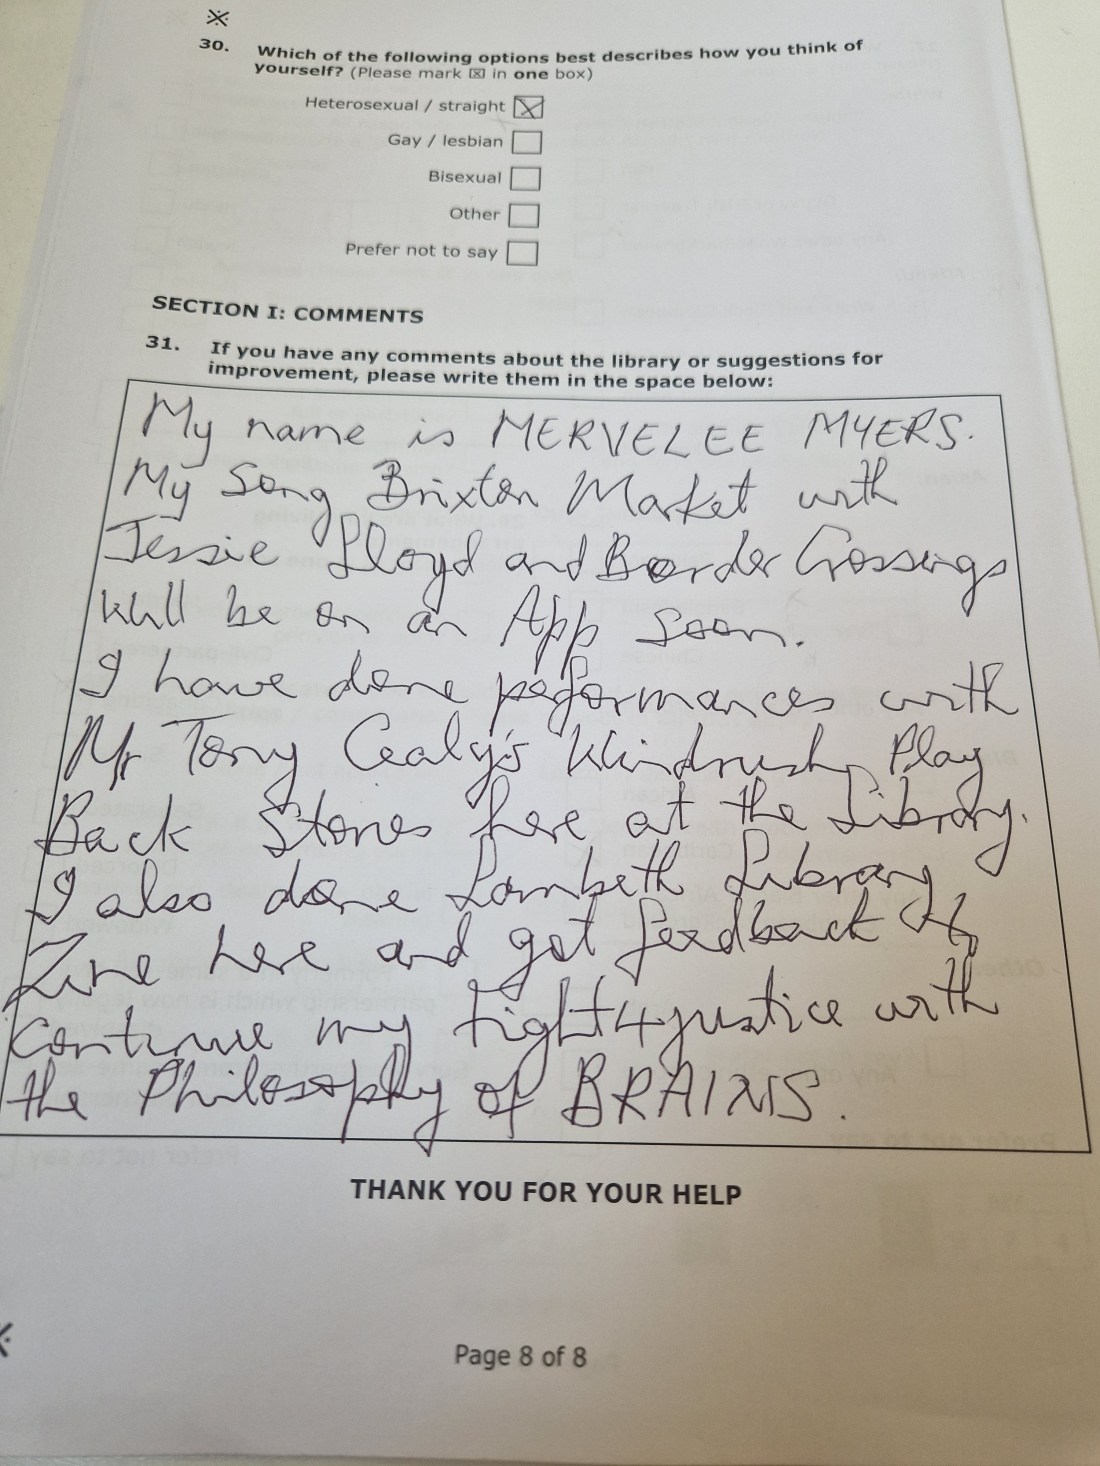 30. Which of the following options best describes how you think of
yourself? (Please mark ☒ in one box)
Heterosexual / straight ☒
Gay / lesbian ☐
Bisexual ☐
Other ☐
Prefer not to say ☐
SECTION I: COMMENTS
31. If you have any comments about the library or suggestions for
improvement, please write them in the space below:
My name is MERVELEE MYERS.
My Song Brixton Market with
Jessie Lloyd and Border Crossings
will be on an App soon.
I have done performances with
Mr Tony Cealy's Windrush Play
Back Stories here at the Library.
I also done Lambeth Library
Zine here and get feedback to
continue my fight4justice with
the Philosophy of BRAINS.
THANK YOU FOR YOUR HELP
Page 8 of 8